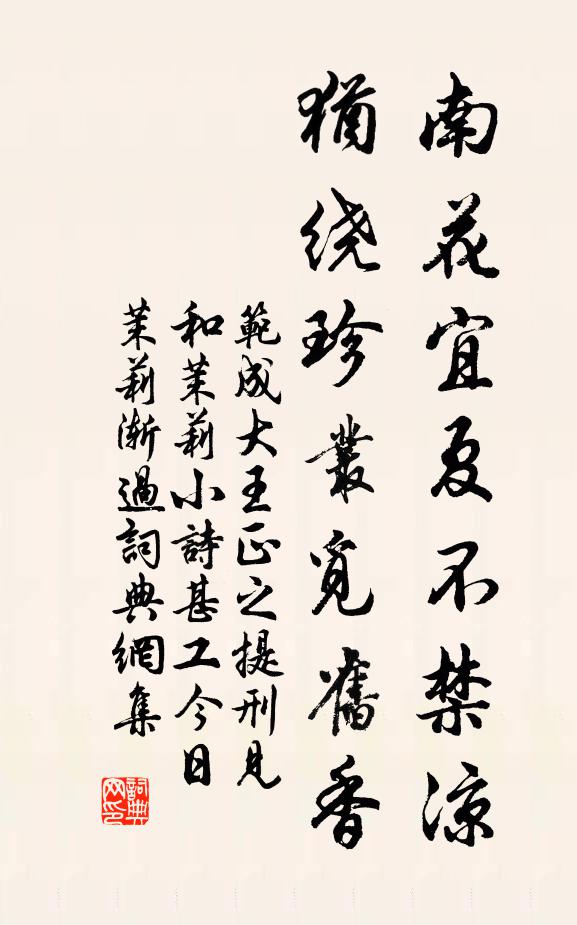 南花宜夏不禁凉
猶绕珍叢覓舊香
範成大王正之提刑見
和茉莉小詩甚工今日
茉莉漸過詞典網集
詞典网印